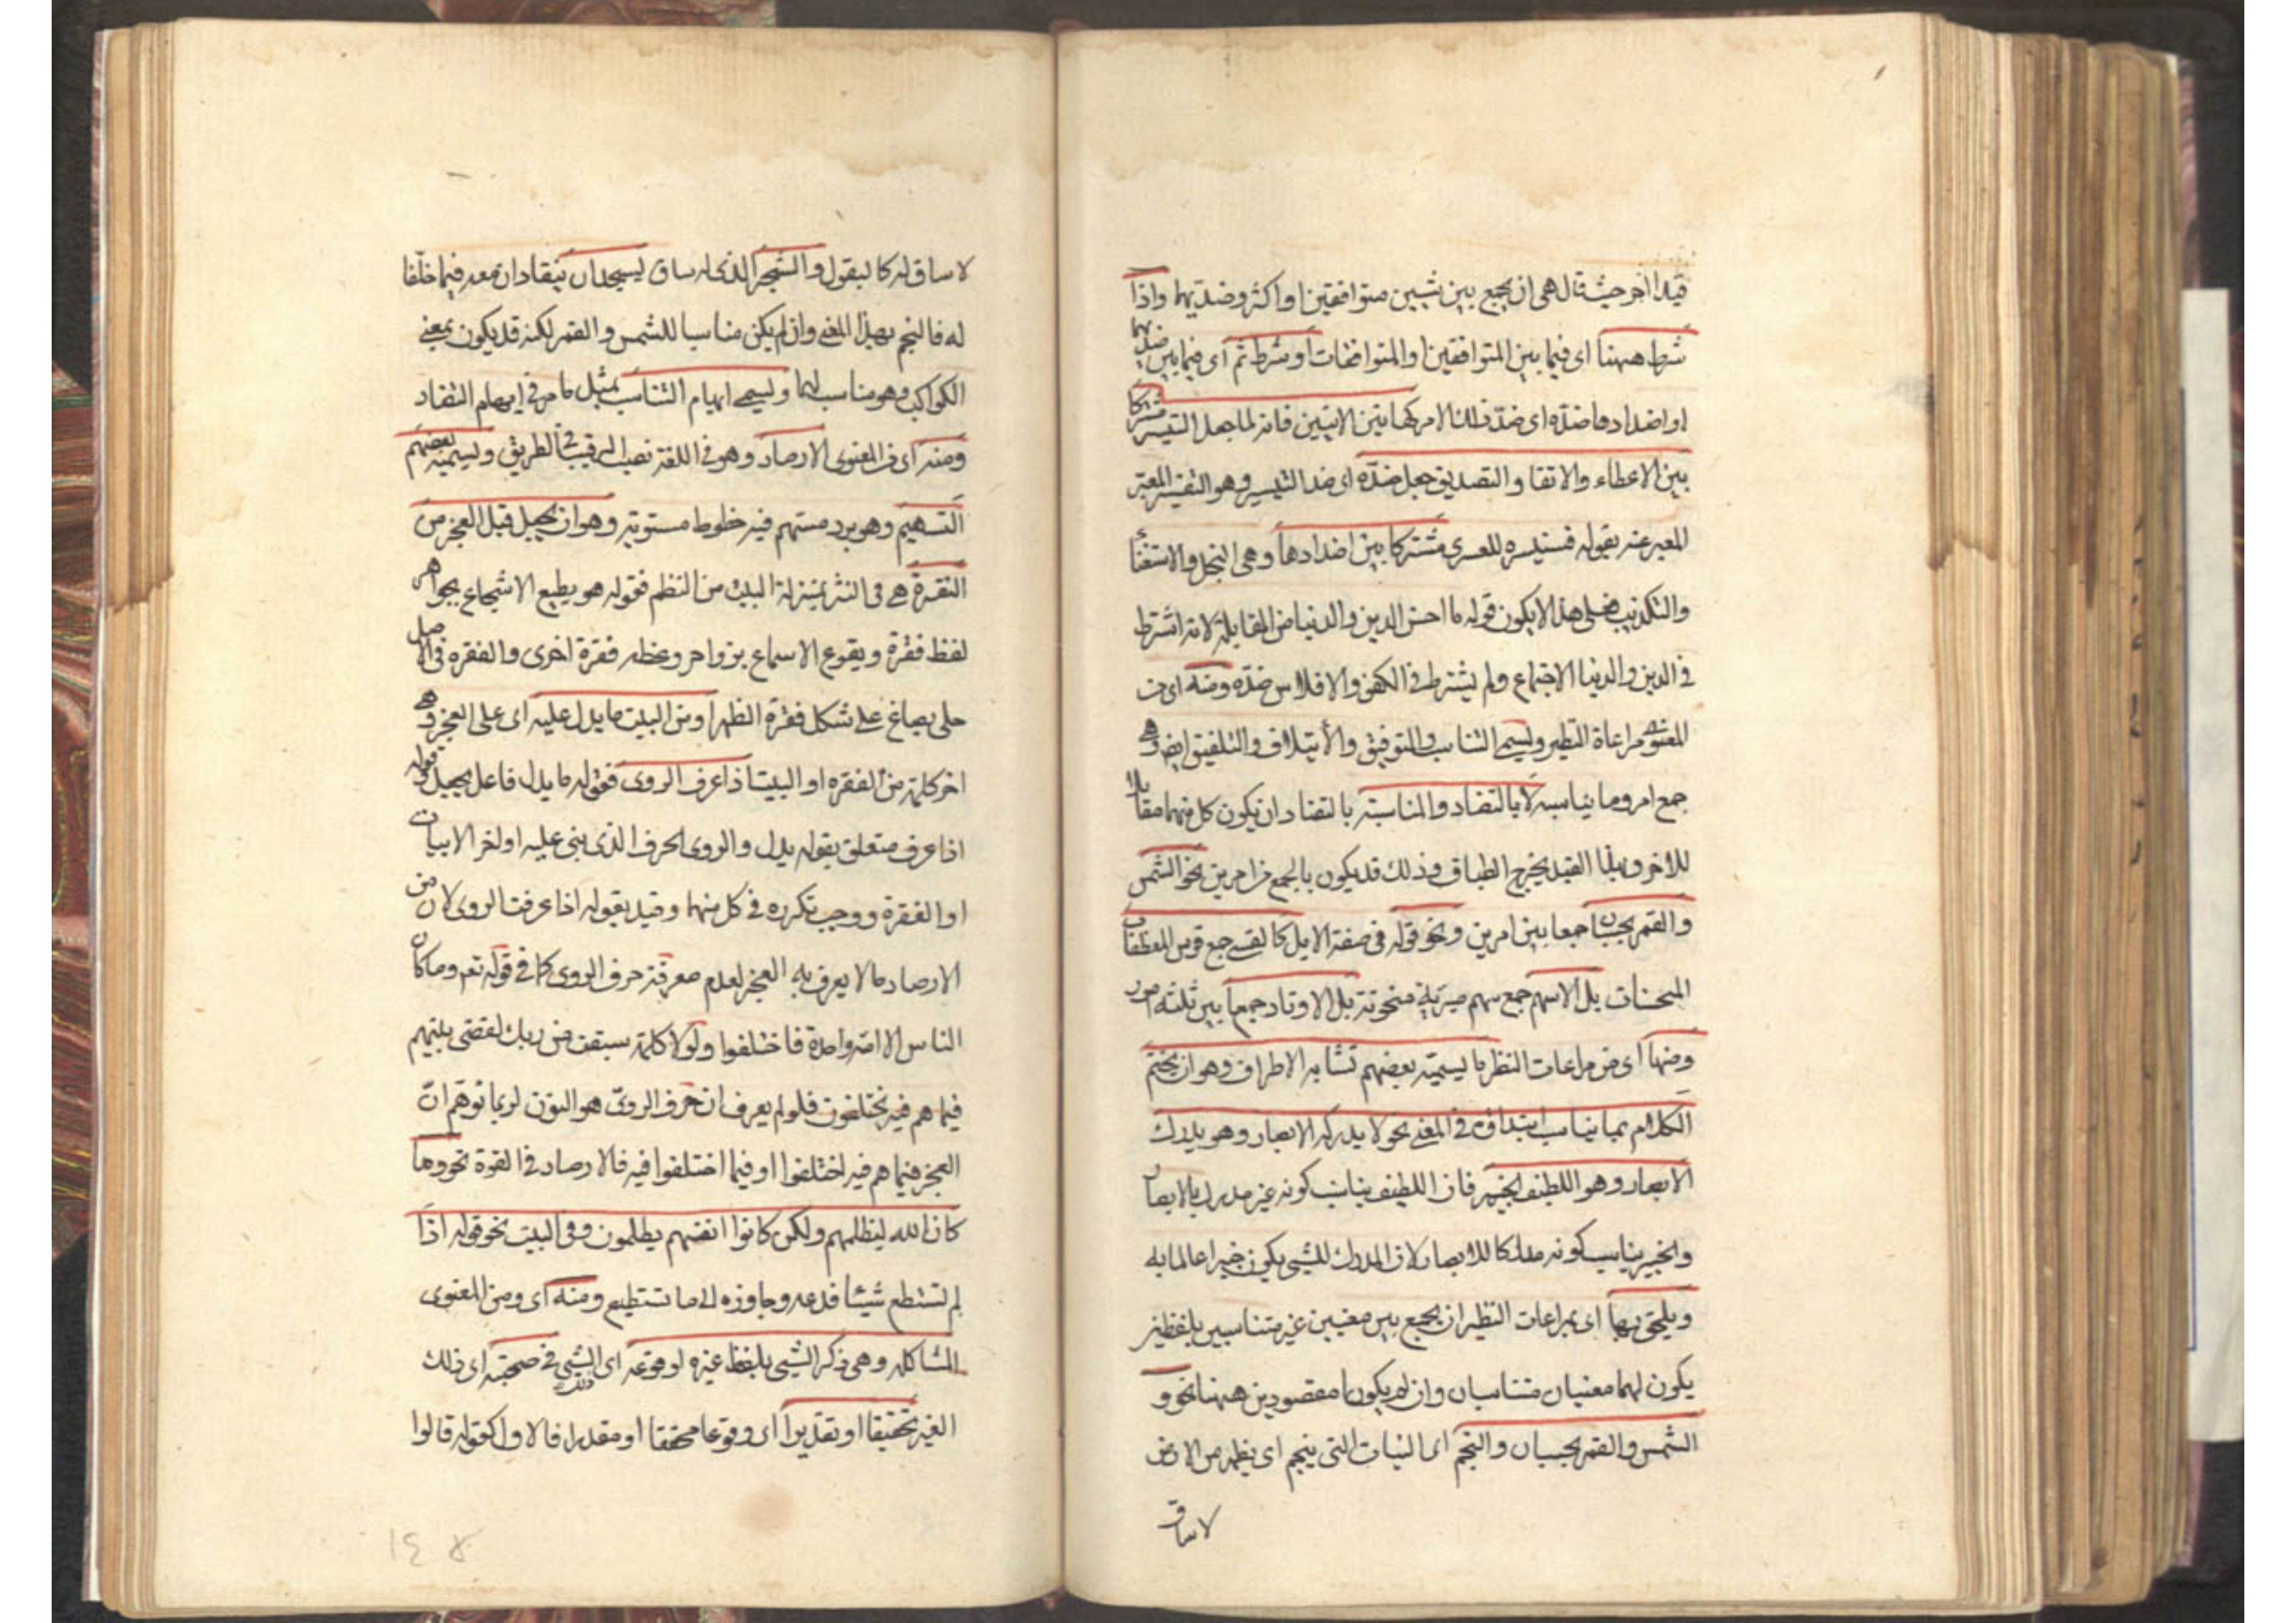 قيدا اخر حيث قال هي ان يجمع بين شيئين متوافقين او اكثر وضديهما واذا
شرط ههنا اى فيما بين المتوافقين او المتوافقات او شرط ثم اى فيما بين ضديهما
او اضدادها ضده اى ضد ذلك الامر كهاتين الايتين فانه لما جعل التيسير مشتركا
بين الاعطاء والاتقا والتصديق جعل ضده اى ضد التيسير وهو التعسير المعبر
المعبر عنه بقوله فسنيسره للعسرى مشتركا بين اضدادها وهى البخل والاستغنا
والتكذيب فعلى هذا لا يكون قوله ما احسن الدين والدنيا من المقابلة لانه اشترط
فى الدين والدنيا الاجتماع ولم يشترط فى الكفر والافلاس ضده ومنه اى من
المعنوى مراعاة النظير ويسمى التناسب والتوفيق والأيتلاف والتلفيق ايضا وهى
جمع امر وما يناسبه لا بالتضاد والمناسبة بالتضاد ان يكون كل منهما مقابلا
للاخر وبهذا القيد يخرج الطباق وذلك قد يكون بالجمع بين امرين نحو الشمس
والقمر بحسبان جمعا بين امرين ونحو قوله فى صفة الابل كالقسى جمع قوس المعطفات
المنحنيات بل الاسهم جمع سهم مبرية منحوتة بل الاوتاد جمعا بين ثلثه امور
ومنها اى من مراعات النظير ما يسميه بعضهم تشابه الاطراف وهو ان يختم
الكلام بما يناسب ابتداؤه فى المعنى نحو لا يدركه الابصار وهو يدرك
الابصار وهو اللطيف الخبير فان اللطيف يناسب كونه غير مدرك بالابصار
والخبير يناسب كونه مدركا للابصار لان المدرك للشئ يكون خبيرا عالما به
ويلحق بها اى بمراعات النظير ان يجمع بين معنيين غير متناسبين بلفظين
يكون لهما معنيان متناسبان وان لم يكونا مقصودين ههنا نحو و
الشمس والقمر بحسبان والنجم اى النبات التى ينجم اى يظهر من الارض
لا ساق
لا ساق له كالبقول والشجر الذى له ساق يسجدان ينقادان لله فيما خلقا
له فالنجم بهذا المعنى وان لم يكن مناسبا للشمس والقمر لكنه قد يكون بمعنى
الكواكب وهو مناسب لهما ويسمى ايهام التناسب بمثل ما مر فى ايهام التضاد
ومنه اى فى المعنوى الارصاد وهو فى اللغة نصب الرقيب فى الطريق ويسميه بعضهم
التسهيم وهو برد مسهم فيه خطوط مستوية وهو ان يجعل قبل العجز من
الفقرة هى فى النثر بمنزلة البيت من النظم فقوله هو يطبع الاسجاع بجواهر
لفظه فقرة ويقرع الاسماع بزواجر وعظه فقرة اخرى والفقره فى الاصل
حلى يصاغ على شكل فقرة الظهر او من البيت ما يدل عليه اى على العجز وهى
اخر كلمة من الفقره او البيت اذا عرف الروى فقوله ما يدل فاعل يجعل وقوله
اذا عرف متعلق بقوله يدل والروى الحرف الذى بنى عليه اواخر الابيات
او الفقرة ووجب تكرره فى كل منهما وقيد بقوله اذا عرفت الروى لان من
الارصاد ما لا يعرف به العجز لعدم معرفة حرف الروى كما فى قوله تعه وما كان
الناس الا امة واحدة فاختلفوا ولولا كلمة سبقت من ربك لقضى بينهم
فيما هم فيه يختلفون فلو لم يعرف ان حرف الروى هو النون لربما توهم ان
العجز فيما هم فيه اختلفوا او فيما اختلفوا فيه فالارصاد فى الفقرة نحو وما
كان الله ليظلمهم ولكن كانوا انفسهم يظلمون وفى البيت نحو قوله اذا
لم تستطع شيئا فدعه وجاوزه الى ما تستطيع ومنه اى ومن المعنوى
المشاكله وهى ذكر الشئ بلفظ غيره لوقوعه اى الشئ فى صحبته اى ذلك
الغير تحقيقا او تقديرا اى وقوعا محققا او مقدرا فالاول كقوله قالوا